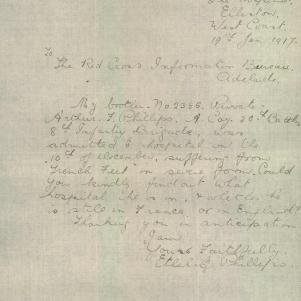 Elliston,
West Coast.
19th Jan 1917.
To
The Red Cross Information Bureau,
Adelaide.
My brother - No 2386, Private
Arthur. L. Phillips. A Coy. 30th Battn
8th Infantry Brigade, was
admitted to hospital on the
10th of December, suffering from
Trench Feet in severe form. Could
you kindly find out what
hospital he is in, & whether he
is still in France, or in England?
Thanking you in anticipation
I am
Yours Faithfully
Phillips.